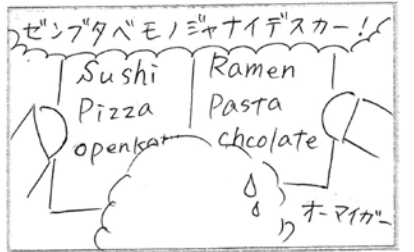 ゼンブタベモノジャナイデスカー！
Sushi
Pizza
Ramen
Pasta
chcolate
オーマイガー